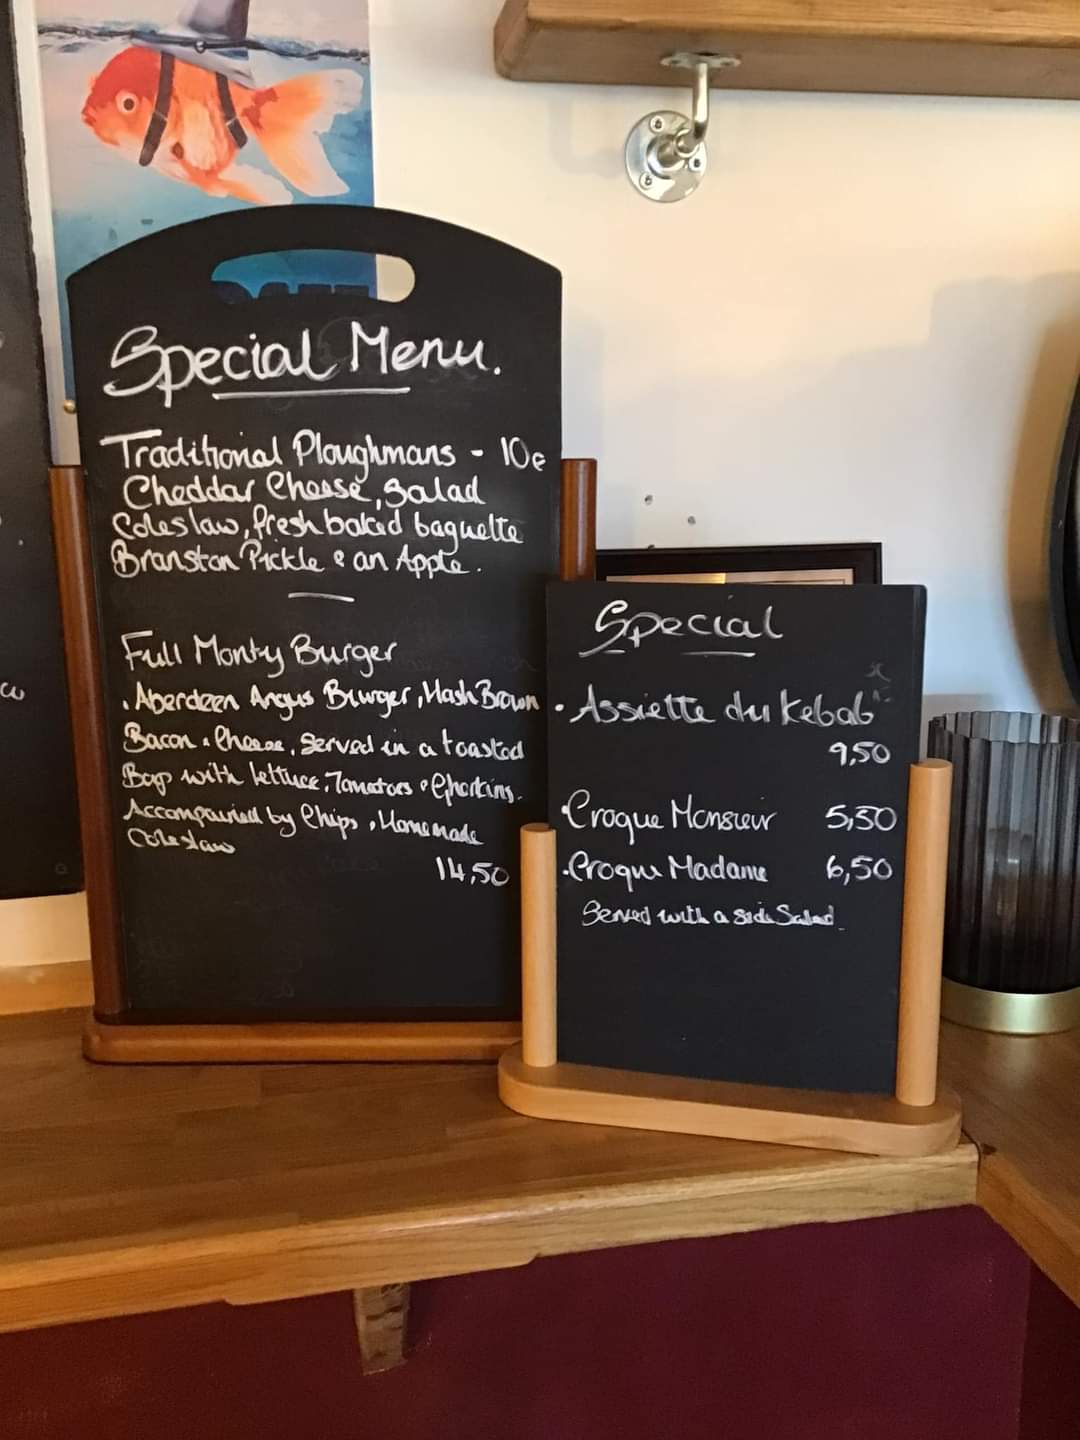 Special Menu.
Traditional Ploughmans - 10e
Cheddar Cheese, Salad
Coleslaw, fresh baked baguette
Branston Pickle & an Apple.
Full Monty Burger
. Aberdeen Angus Burger, Hash Brown
Bacon & Cheese, Served in a toasted
Bap with lettuce, Tomatoes & Gherkins.
Accompanied by Chips, Homemade
Coleslaw
14,50
Special
• Assiette du Kebab
9,50
• Croque Monsieur 5,50
• Croque Madame 6,50
Served with a side Salad.